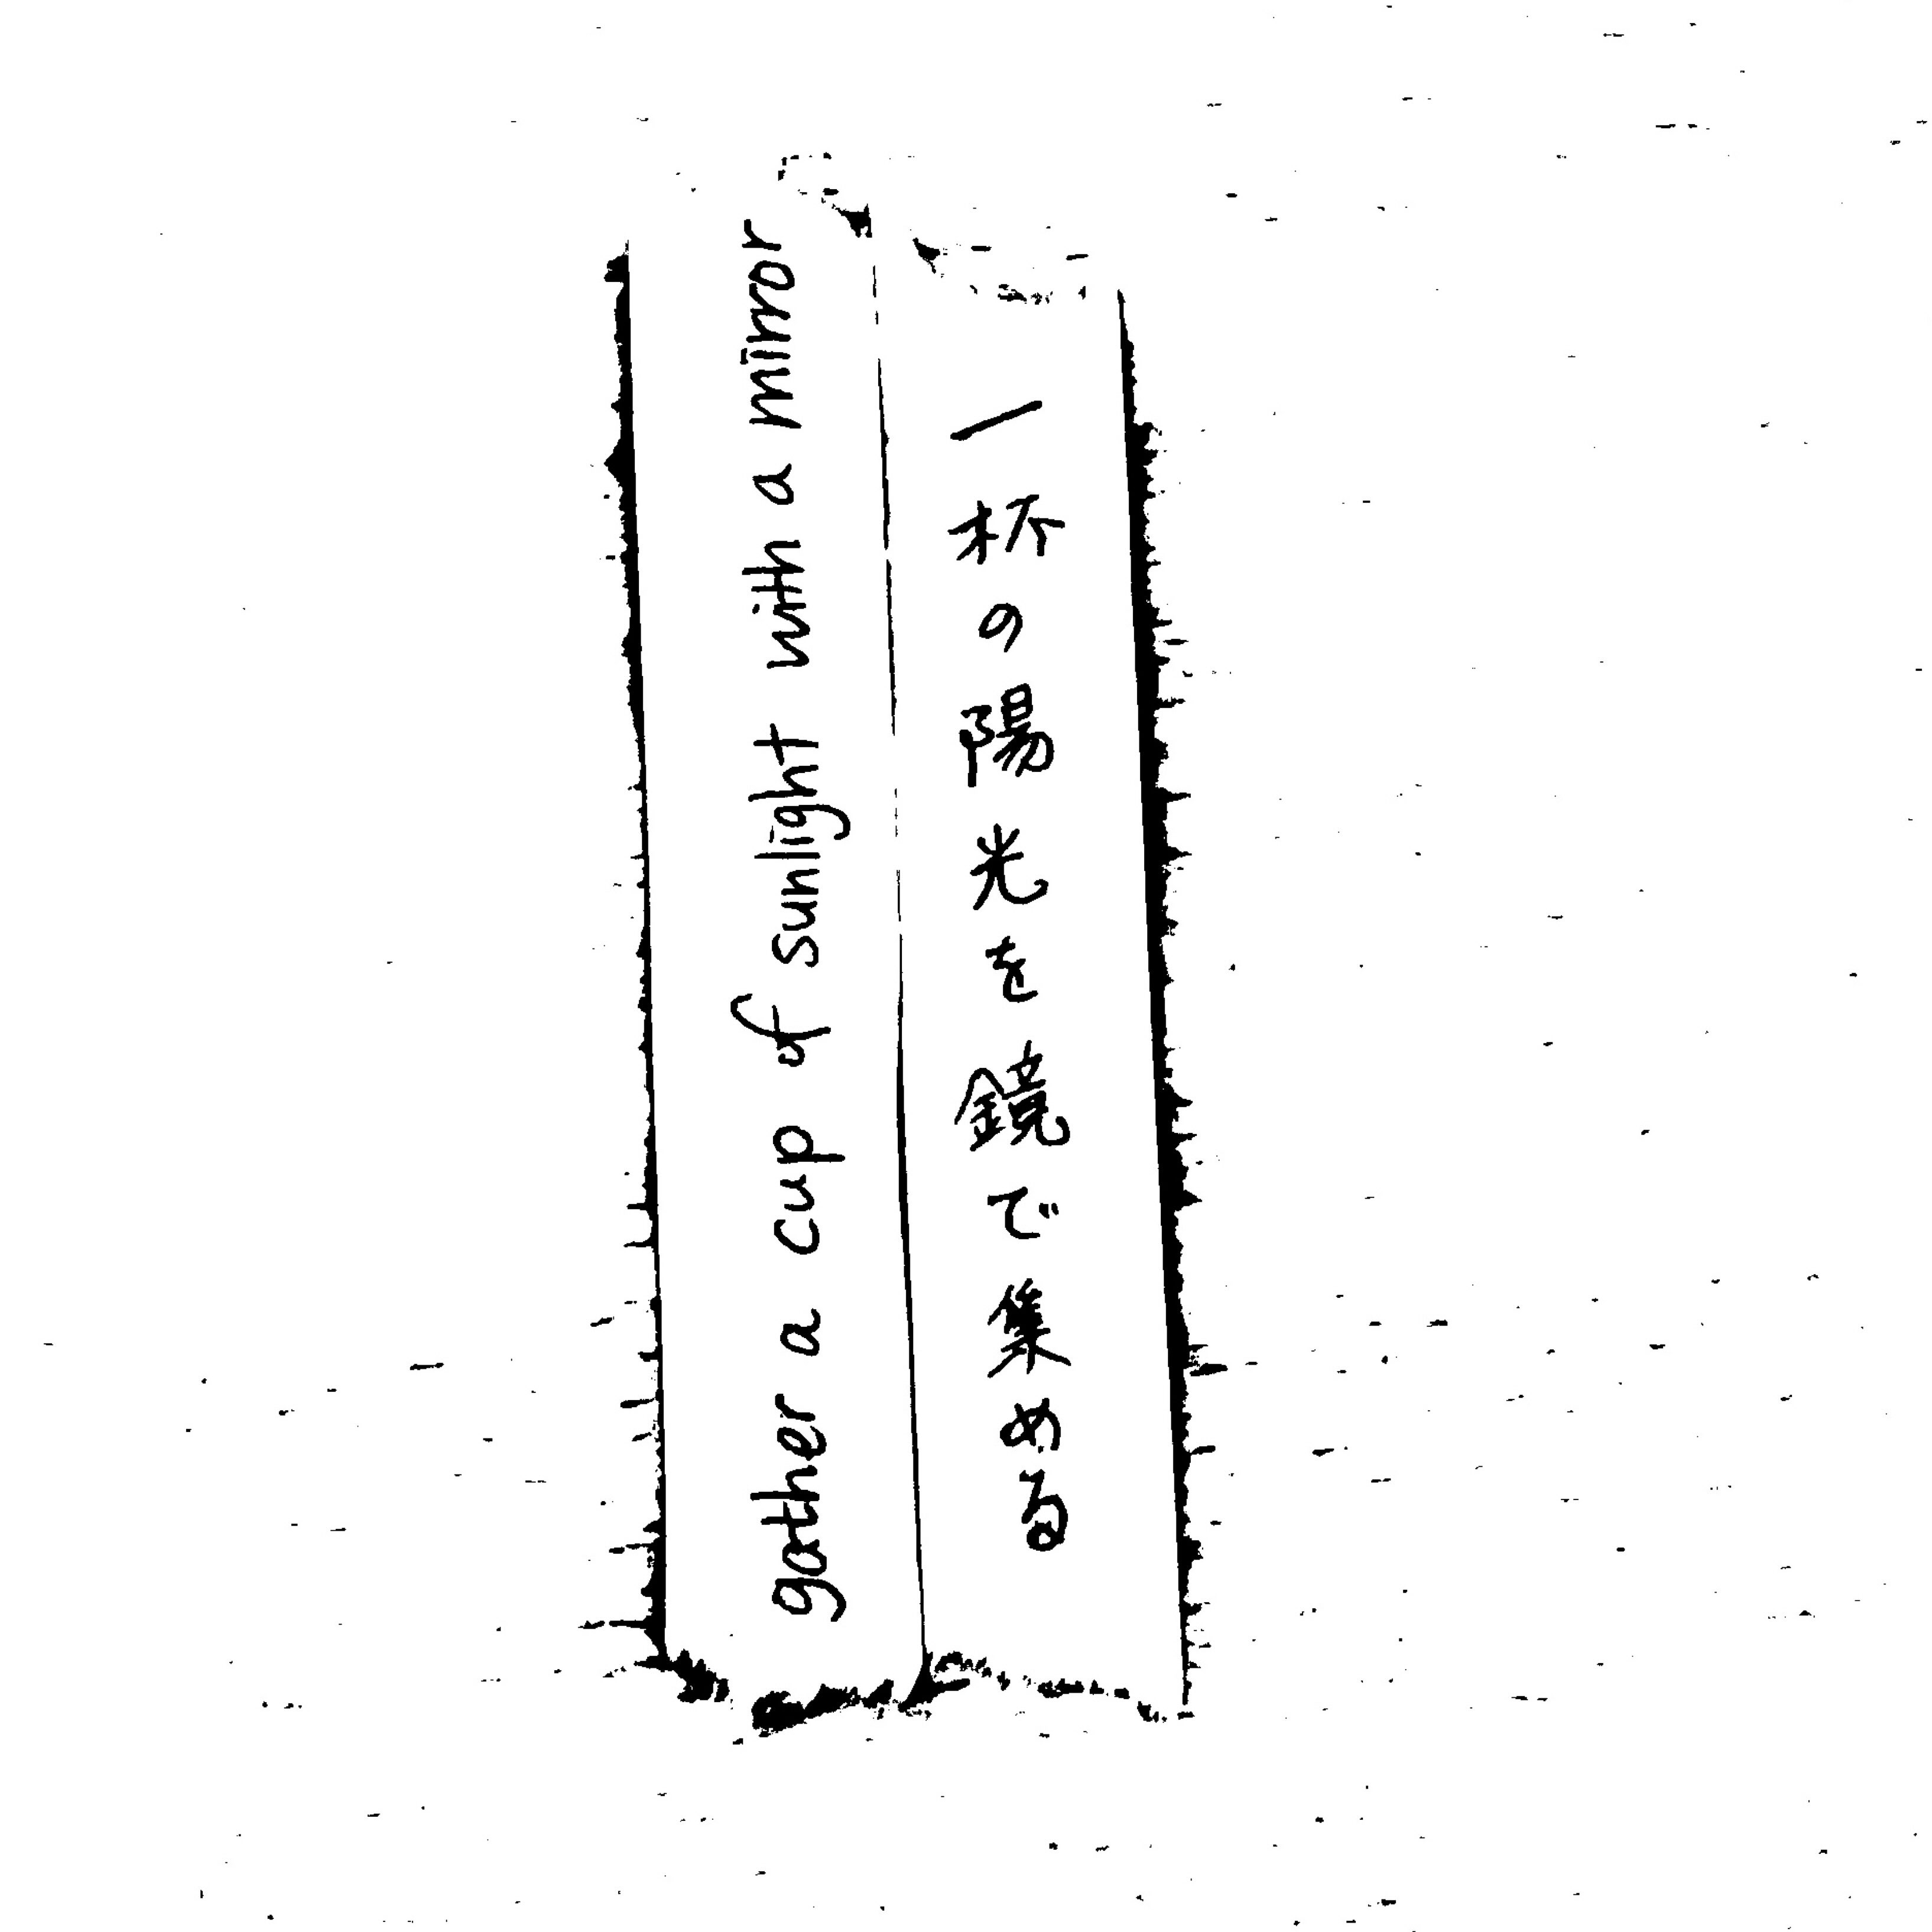 一杯の陽光を鏡で集める
gather a cup of sunlight with a mirror